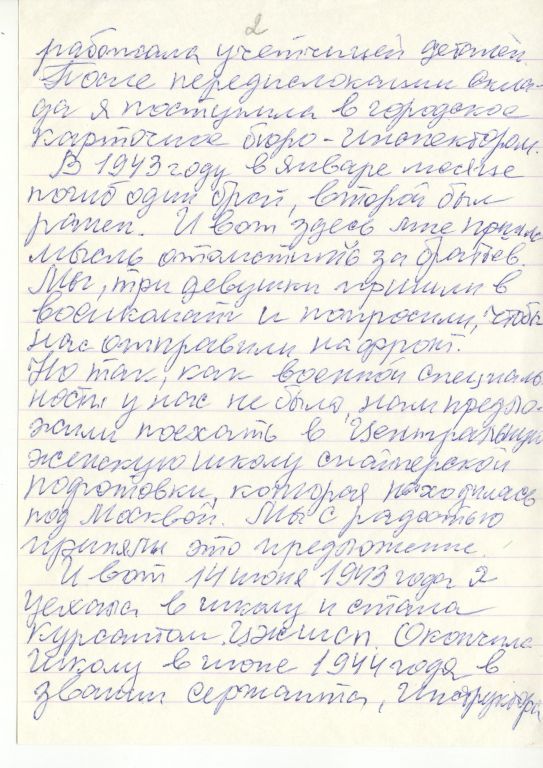 2
работала учётчицей деталей.
После передислокации скла-
да я поступила в городское
карточное бюро - инспектором.
В 1943 году в январе месяце
погиб один брат, второй был
ранен. И вот здесь мне пришла
мысль отомстить за братьев.
Мы, три девушки пришли в
военкомат и попросили, чтобы
нас отправили на фронт.
Но так, как военной специаль-
ности у нас не было, нам предло-
жили поехать в Центральную
женскую школу снайперской
подготовки, которая находилась
под Москвой. Мы с радостью
приняли это предложение.
И вот 14 июня 1943 года я
уехала в школу и стала
курсантом ЦЖШСП. Окончила
школу в июне 1944 года в
звании сержанта,